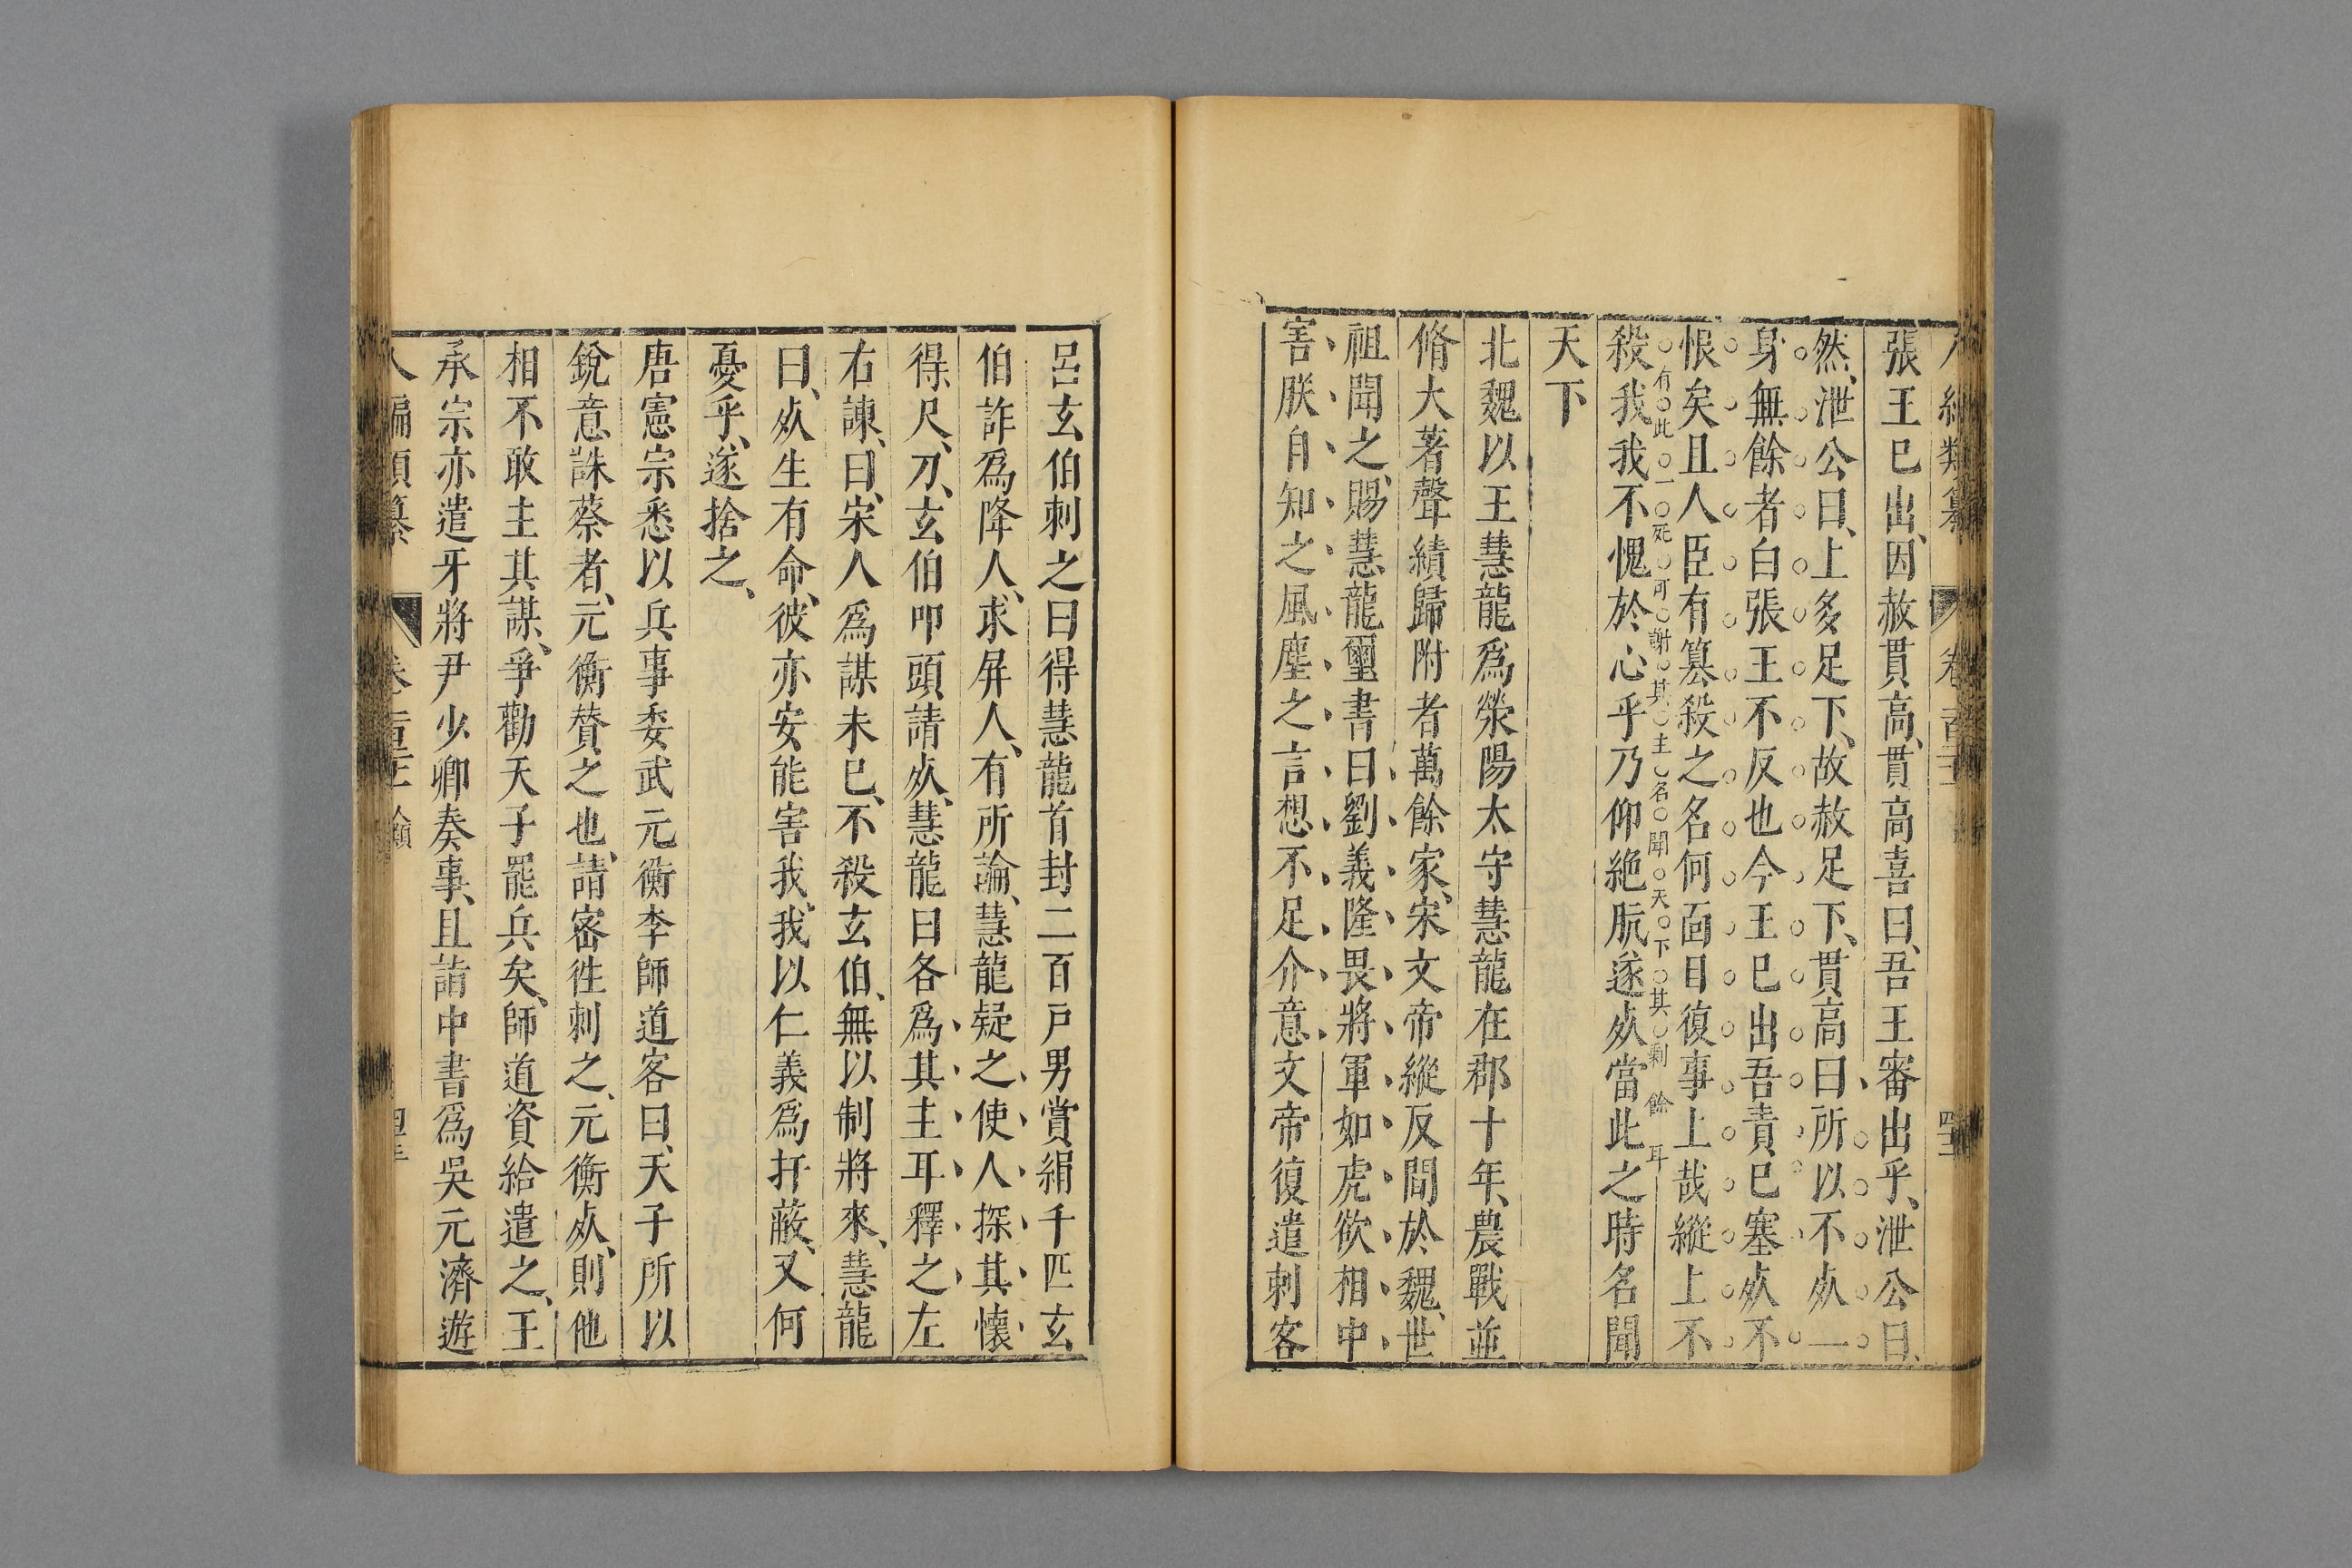 張王已出因赦貫高貫高喜曰吾王審出乎泄公曰
然泄公曰上多足下故赦足下貫高曰所以不㱠一
身無餘者白張王不反也今王已出吾責已塞㱠不
恨矣且人臣有簒殺之名何面目復事上哉縱上不
有此一死可謝其主名聞天下其剩餘耳
殺我我不愧於心乎乃仰絶肮遂㱠當此之時名聞
天下
北魏以王慧龍爲滎陽太守慧龍在郡十年農戰並
脩大著聲績歸附者萬餘家宋文帝縱反間於魏世
祖聞之賜慧龍璽書曰劉義隆畏將軍如虎欲相中
害朕自知之風塵之言想不足介意文帝復遣刺客
呂玄伯刺之曰得慧龍首封二百戸男賞絹千匹玄
伯詐爲降人求屏人有所論慧龍疑之使人探其懷
得尺刀玄伯叩頭請㱠慧龍曰各爲其主耳釋之左
右諫曰宋人爲謀未已不殺玄伯無以制將來慧龍
曰㱠生有命彼亦安能害我我以仁義爲扞蔽又何
憂乎遂捨之
唐憲宗悉以兵事委武元衡李師道客曰天子所以
銳意誅蔡者元衡賛之也請密徃刺之元衡㱠則他
相不敢主其謀爭勸天子罷兵矣師道資給遣之王
承宗亦遣牙將尹少卿奏事且請中書爲吳元濟遊